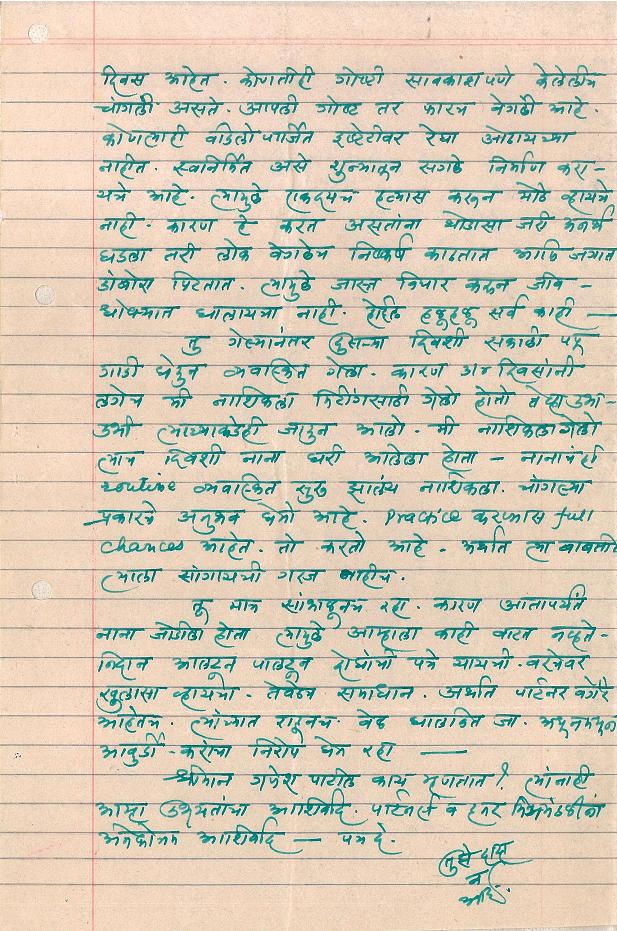 दिवस आहेत. कोणतीही गोष्टी सावकाशपणे केलेलीच
चांगली असते. आपली गोष्ट तर फारच वेगळी आहे.
कोणालाही वडिलोपार्जित इस्टेटीवर रेघा ओढायच्या
नाहीत. स्वनिर्मित असे शुन्यातून सगळे निर्माण करा-
यचे आहे. त्यामुळे एकदमच हव्यास करून मोठे व्हायचे
नाही. कारण हे करत असतांना थोडासा जरी अनर्थ
घडला तरी लोक वेगळेच निष्कर्ष काढतात आणि जगात
डांबोरा पिटतात. त्यामुळे जास्त विचार करून जीव-
धोक्यात घालायचा नाही. होईल हळूहळू सर्व काही —
तु गेल्यानंतर दुसऱ्या दिवशी सकाळी पप्पू
गाडी घेवुन व्यवस्थित गेला. कारण ३/४ दिवसांनी
लगेच मी नाशिकला मिटींगसाठी गेलो होतो तेव्हा उभा-
उभी त्याच्याकडेही जावुन आलो. मी नाशिकला गेलो
त्याच दिवशी नाना घरी आलेला होता - नानाचेही
routine व्यवस्थित सुरु झालंय नाशिकला. चांगल्या
प्रकारचे अनुभव घेतो आहे. Practice करण्यास full
chances आहेत. तो करतो आहे. अर्थात त्या बाबतीत
त्याला सांगायची गरज नाहीच.
तू मात्र सांभाळूनच रहा. कारण आतापर्यंत
नाना जोडीला होता त्यामुळे आम्हाला काही वाटत नव्हते-
निदान आलटून पालटून दोघांची पत्रे यायची. वरचेवर
खुलासा व्हायचा. तेवढेच समाधान. अर्थात पार्टनर वगैरे
आहेतच. त्यांच्यात राहूनच वेळ घालवित जा. अधूनमधून
आकुर्डी-करांचा निरोप घेत रहा —
श्रीमान गणेश पाटील काय म्हणतात? त्यांनाही
आम्हां उभयतांचा आशिर्वाद. पार्टनर्स व इतर मित्रमंडळींना
अनेकोत्तम आशिर्वाद — पत्र दे.
तुझे दादा
व
आई.